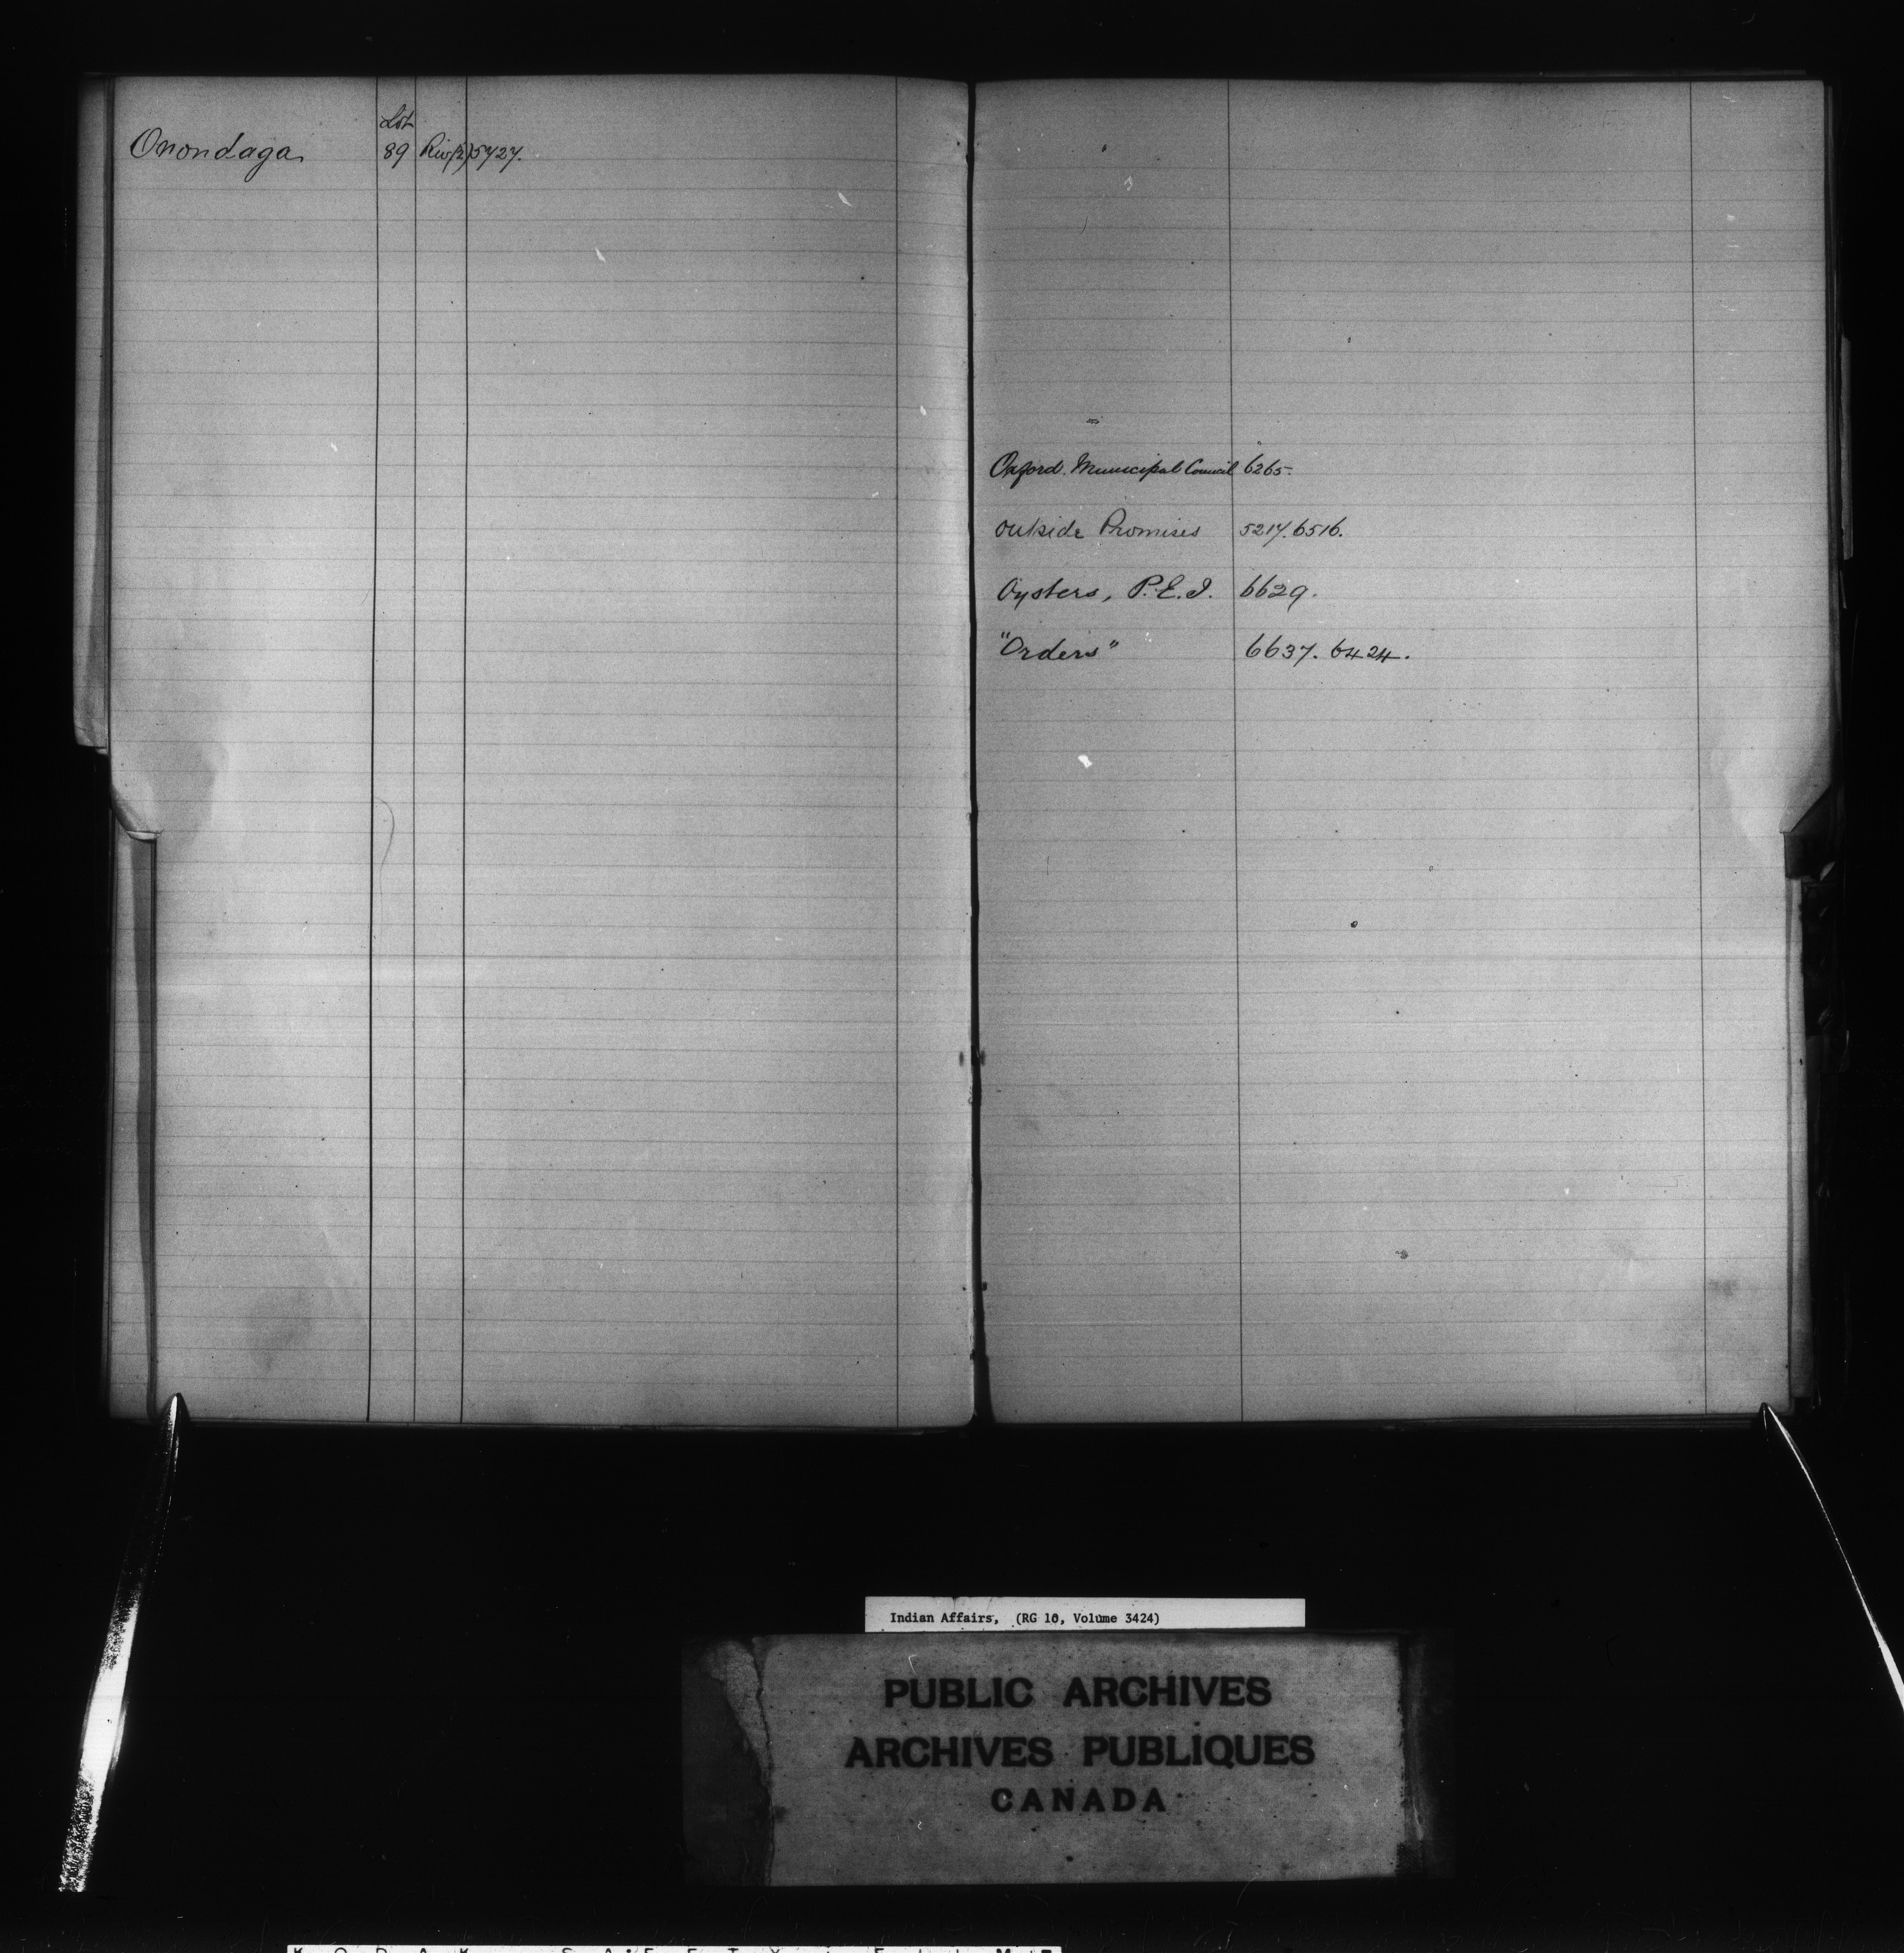 Lot
Onondaga 89 Riv (2) 5727.
Oxford. Municipal Council 6265.
Outside Promises 5217. 6516.
Oysters, P.E.I. 6629.
"Orders" 6637. 6424.
Indian Affairs, (RG 10, Volume 3424)
PUBLIC ARCHIVES
ARCHIVES PUBLIQUES
CANADA